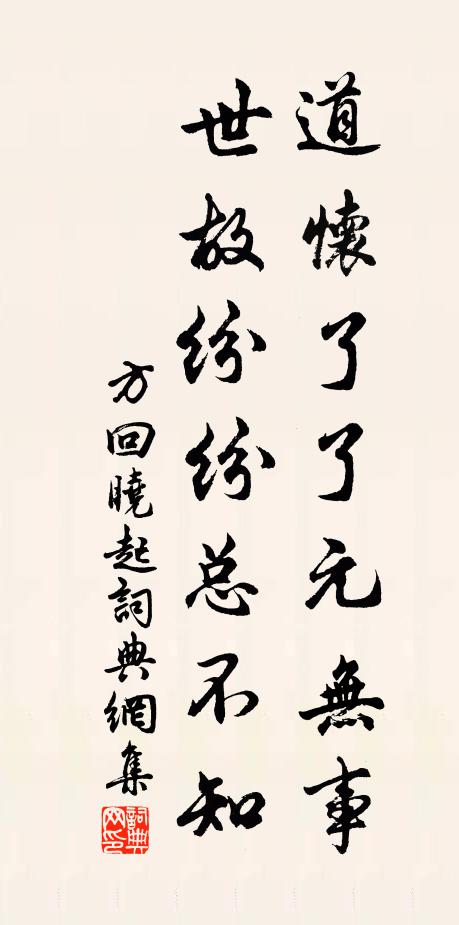 道懷了了元無事
世故紛紛总不知
方回曉起詞典網集
詞典網印